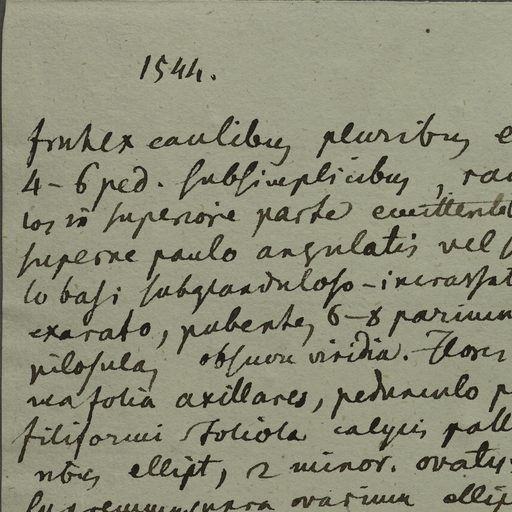 1544.
frutex caulibus pluribus e
4-6 ped. subsimplicibus, ra
los in superiore parte emittentib
superne paulo angulatis vel s
lo basi subglanduloso-incrassat
exarato, pubente, 6-8 parium
pilosulas obscure viridia. Flores
ma folia axillares, pedunculo p
filiformi Foliola calycis pall
ntes ellipt, 2 minor. ovatis
supremum ovarium ellip